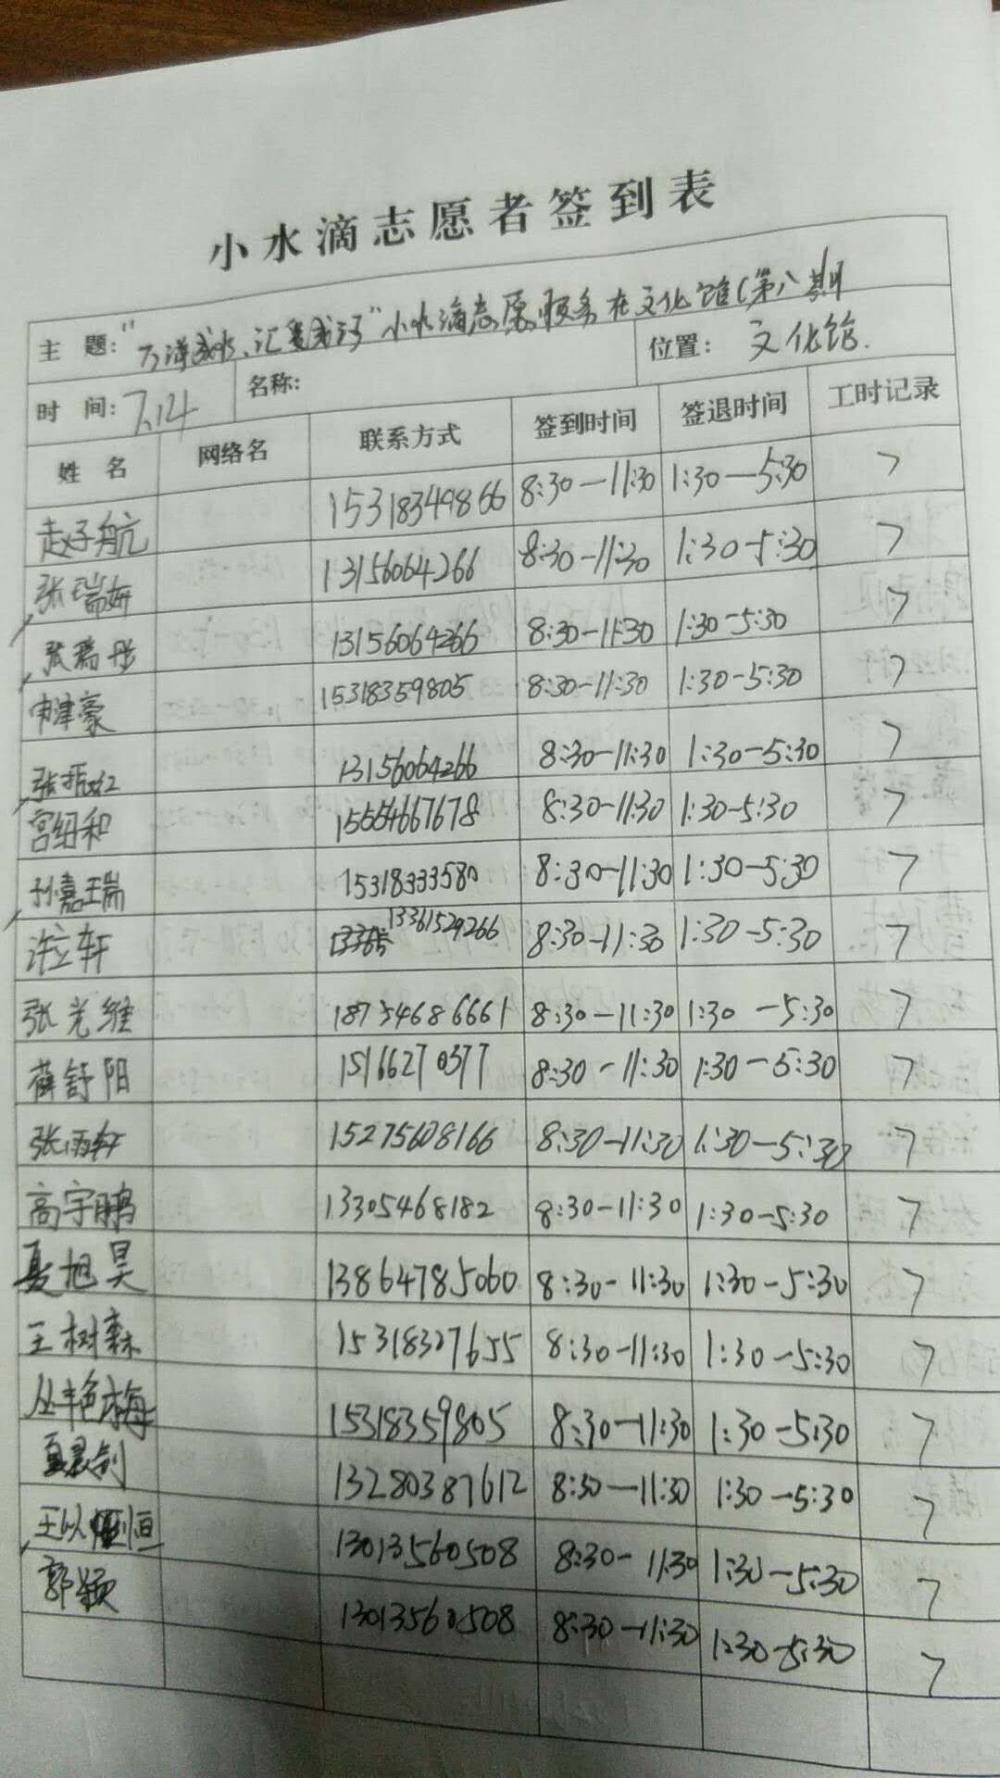 小水滴志愿者签到表
主 题：“万滴成水、汇聚成河”小水滴志愿服务在文化馆（第八期
时 间：7.14 名称： 位置：文化馆.
姓 名 网络名 联系方式 签到时间 签退时间 工时记录
赵子航 15318349866 8:30—11:30 1:30—5:30 7
张瑞妍 13156064266 8:30-11:30 1:30-5:30 7
张瑞彤 13156064266 8:30-11:30 1:30-5:30 7
申津豪 15318359805 8:30-11:30 1:30-5:30 7
张 13156064266 8:30-11:30 1:30-5:30 7
宫绍和 15554667678 8:30-11:30 1:30-5:30 7
孙嘉瑞 15318333580 8:30-11:30 1:30-5:30 7
许立轩 13361529266 8:30-11:30 1:30-5:30 7
张光维 18754686661 8:30-11:30 1:30-5:30 7
薛舒阳 15166270377 8:30-11:30 1:30-5:30 7
张雨轩 15275608166 8:30-11:30 1:30-5:30 7
高宇鹏 13305468182 8:30-11:30 1:30-5:30 7
夏旭昊 13864785060 8:30-11:30 1:30-5:30 7
王树森 15318327655 8:30-11:30 1:30-5:30 7
丛艳梅 15318359805 8:30-11:30 1:30-5:30 7
13280387612 8:30—11:30 1:30-5:30 7
王以恒 13013560508 8:30-11:30 1:30-5:30 7
郭颖 13013560508 8:30-11:30 1:30-5:30 7